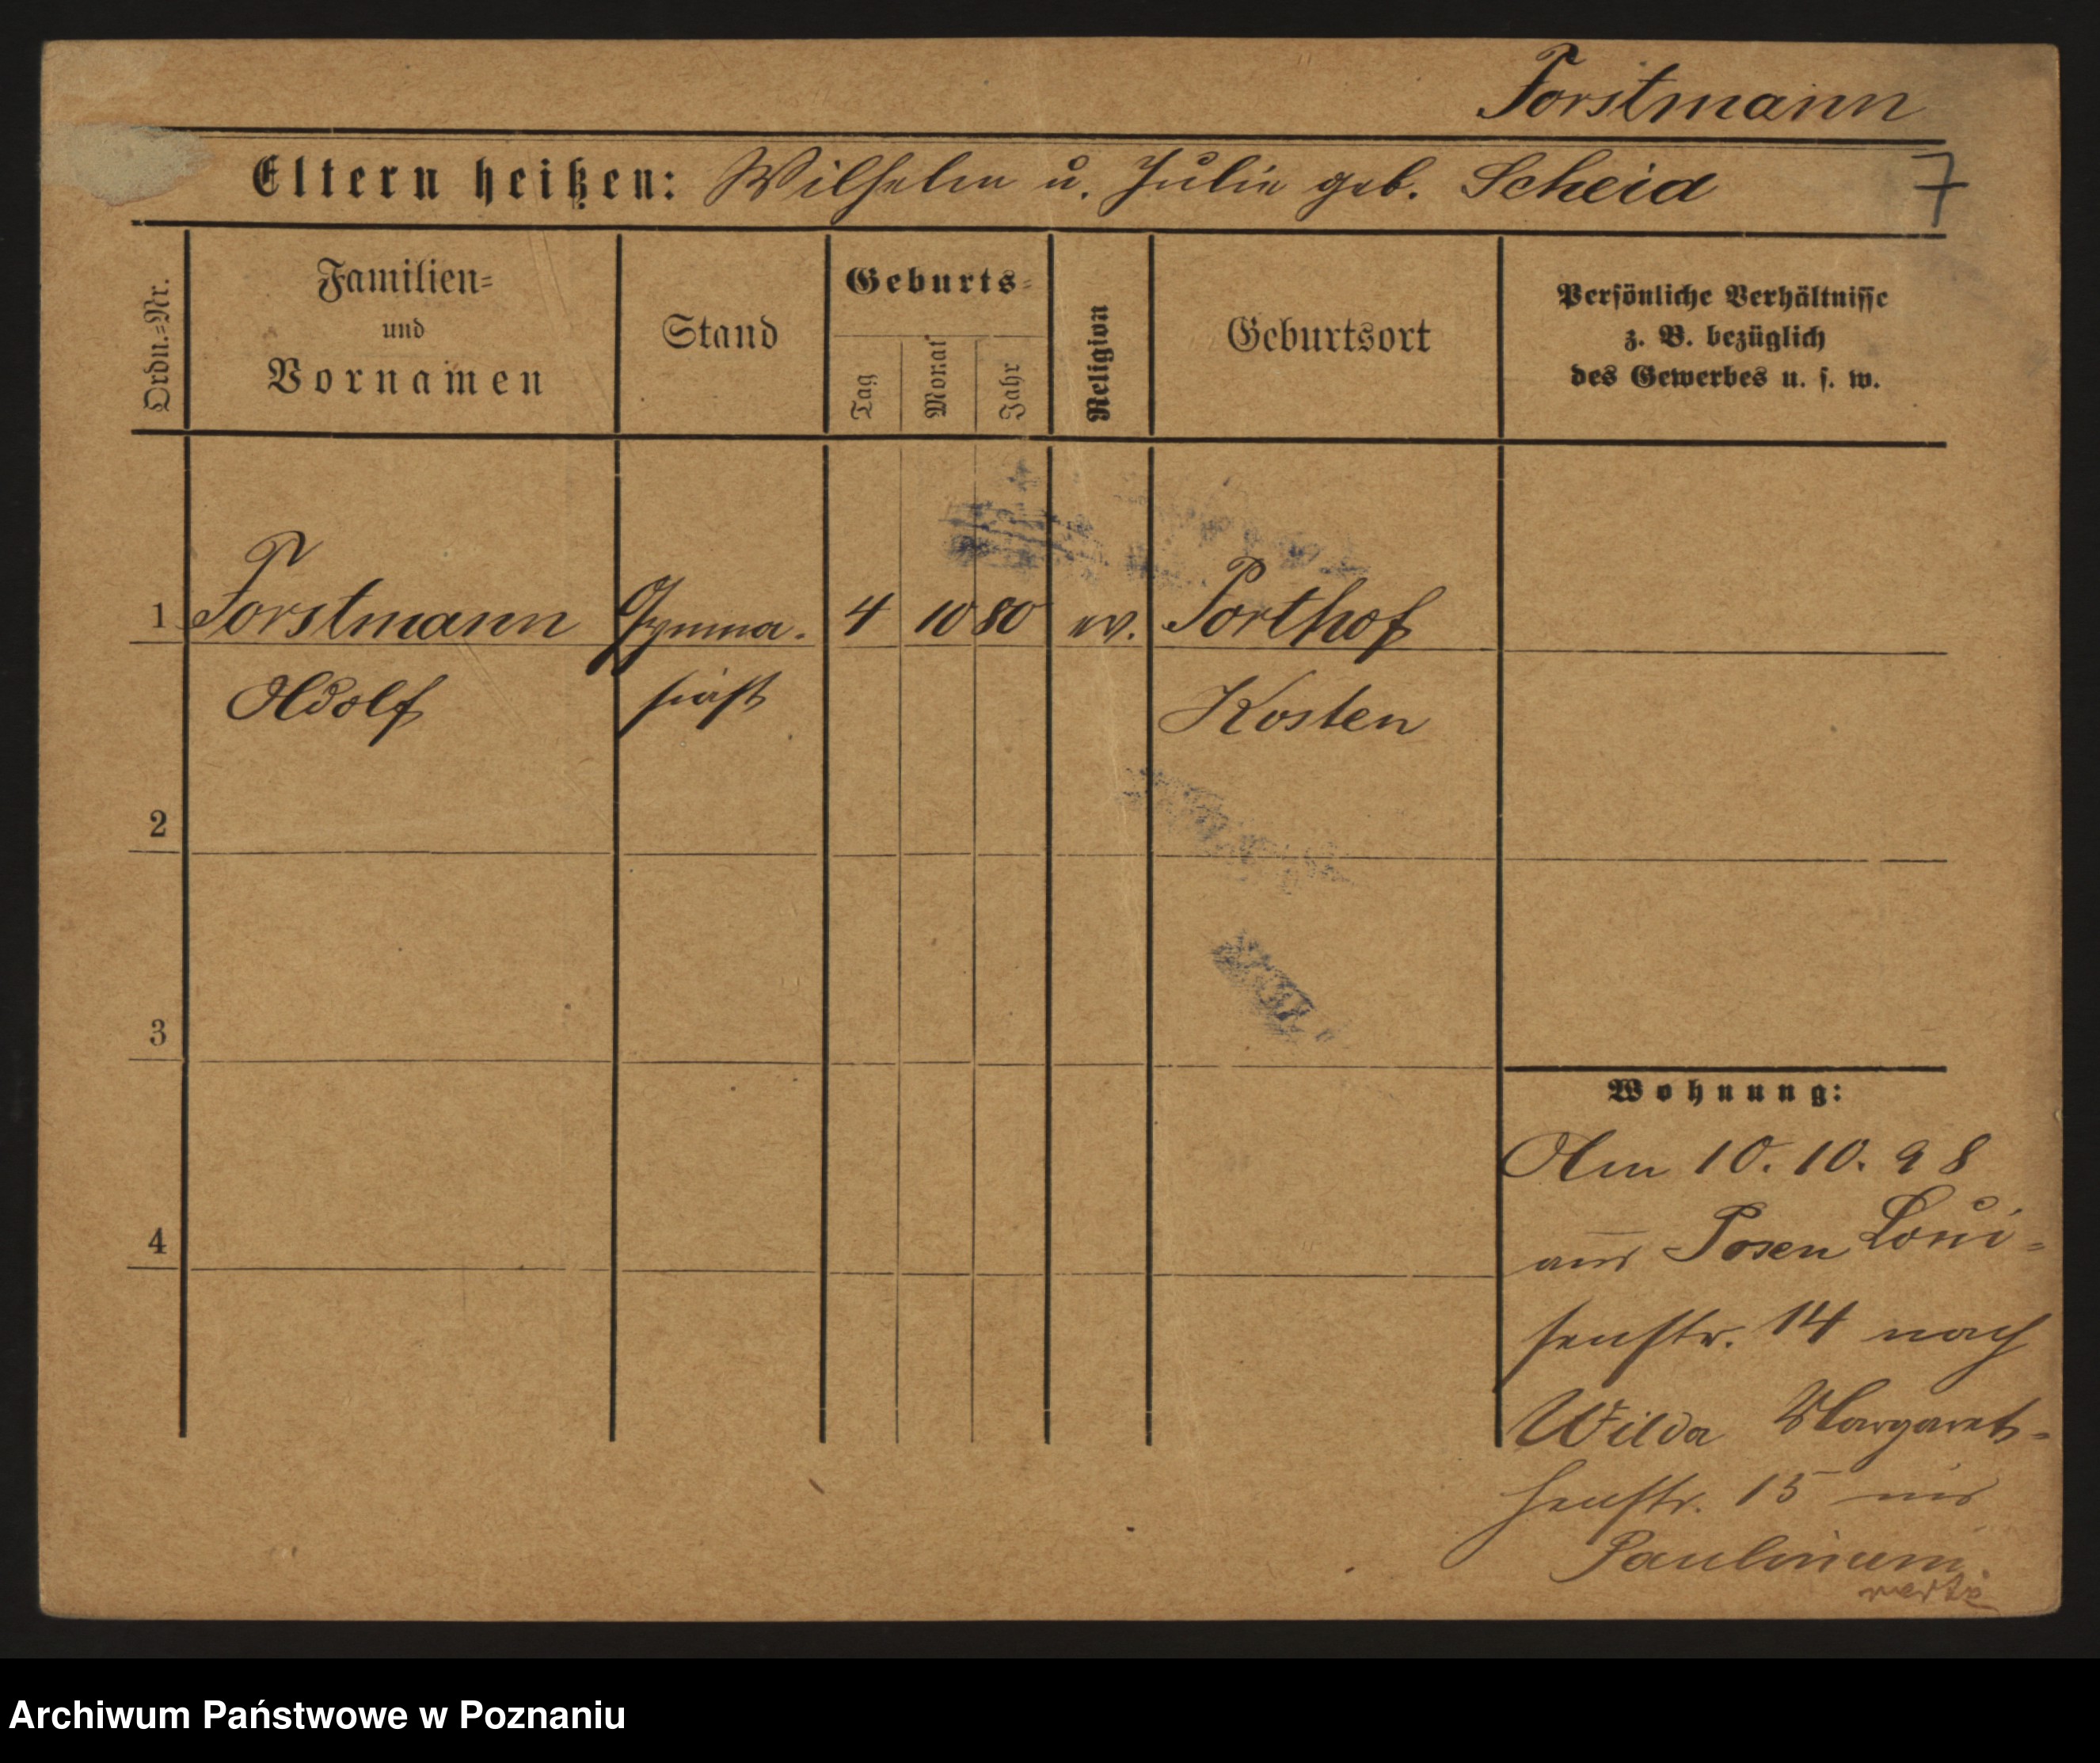 Forstmann
Eltern heißen: Wilhelm u. Julie geb. Scheid
7
Ordn.=Nr.
Familien=
und
Vornamen
Stand
Geburts=
Tag
Monat
Jahr
Religion
Geburtsort
Persönliche Verhältnisse
z. B. bezüglich
des Gewerbes u. s. w.
1 Forstmann Gymna. 4 10 80 ev. Forthof
Adolf siast Kosten
2
3
4
Wohnung:
Am 10. 10. 98
aus Posen Loui=
senstr. 14 nach
Wilda Margareth=
henstr. 15 ins
Paulinum
verte
Archiwum Państwowe w Poznaniu